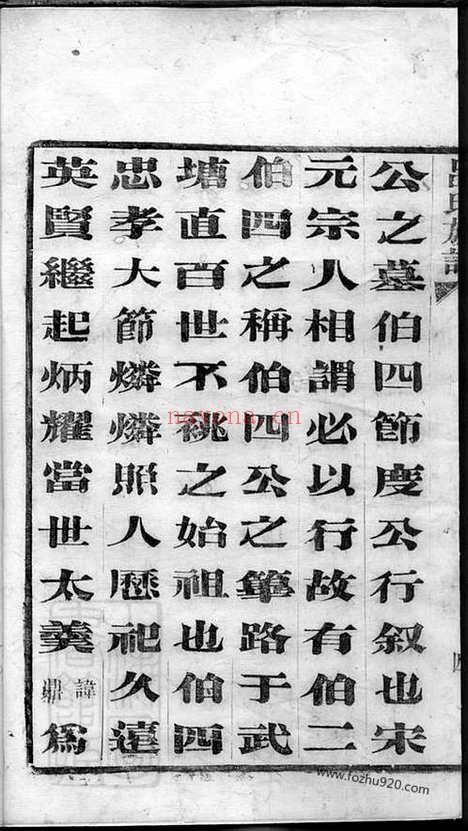 呂氏族譜
公之墓伯四節度公行叙也宋
元宗人相謂必以行故有伯二
伯四之稱伯四公之篳路于武
塘直百世不祧之始祖也伯四
忠孝大節燐燐照人歷祀久遠
英賢繼起炳耀當世太羹諱鼎爲
nayona.cn
www.fozhu920.com